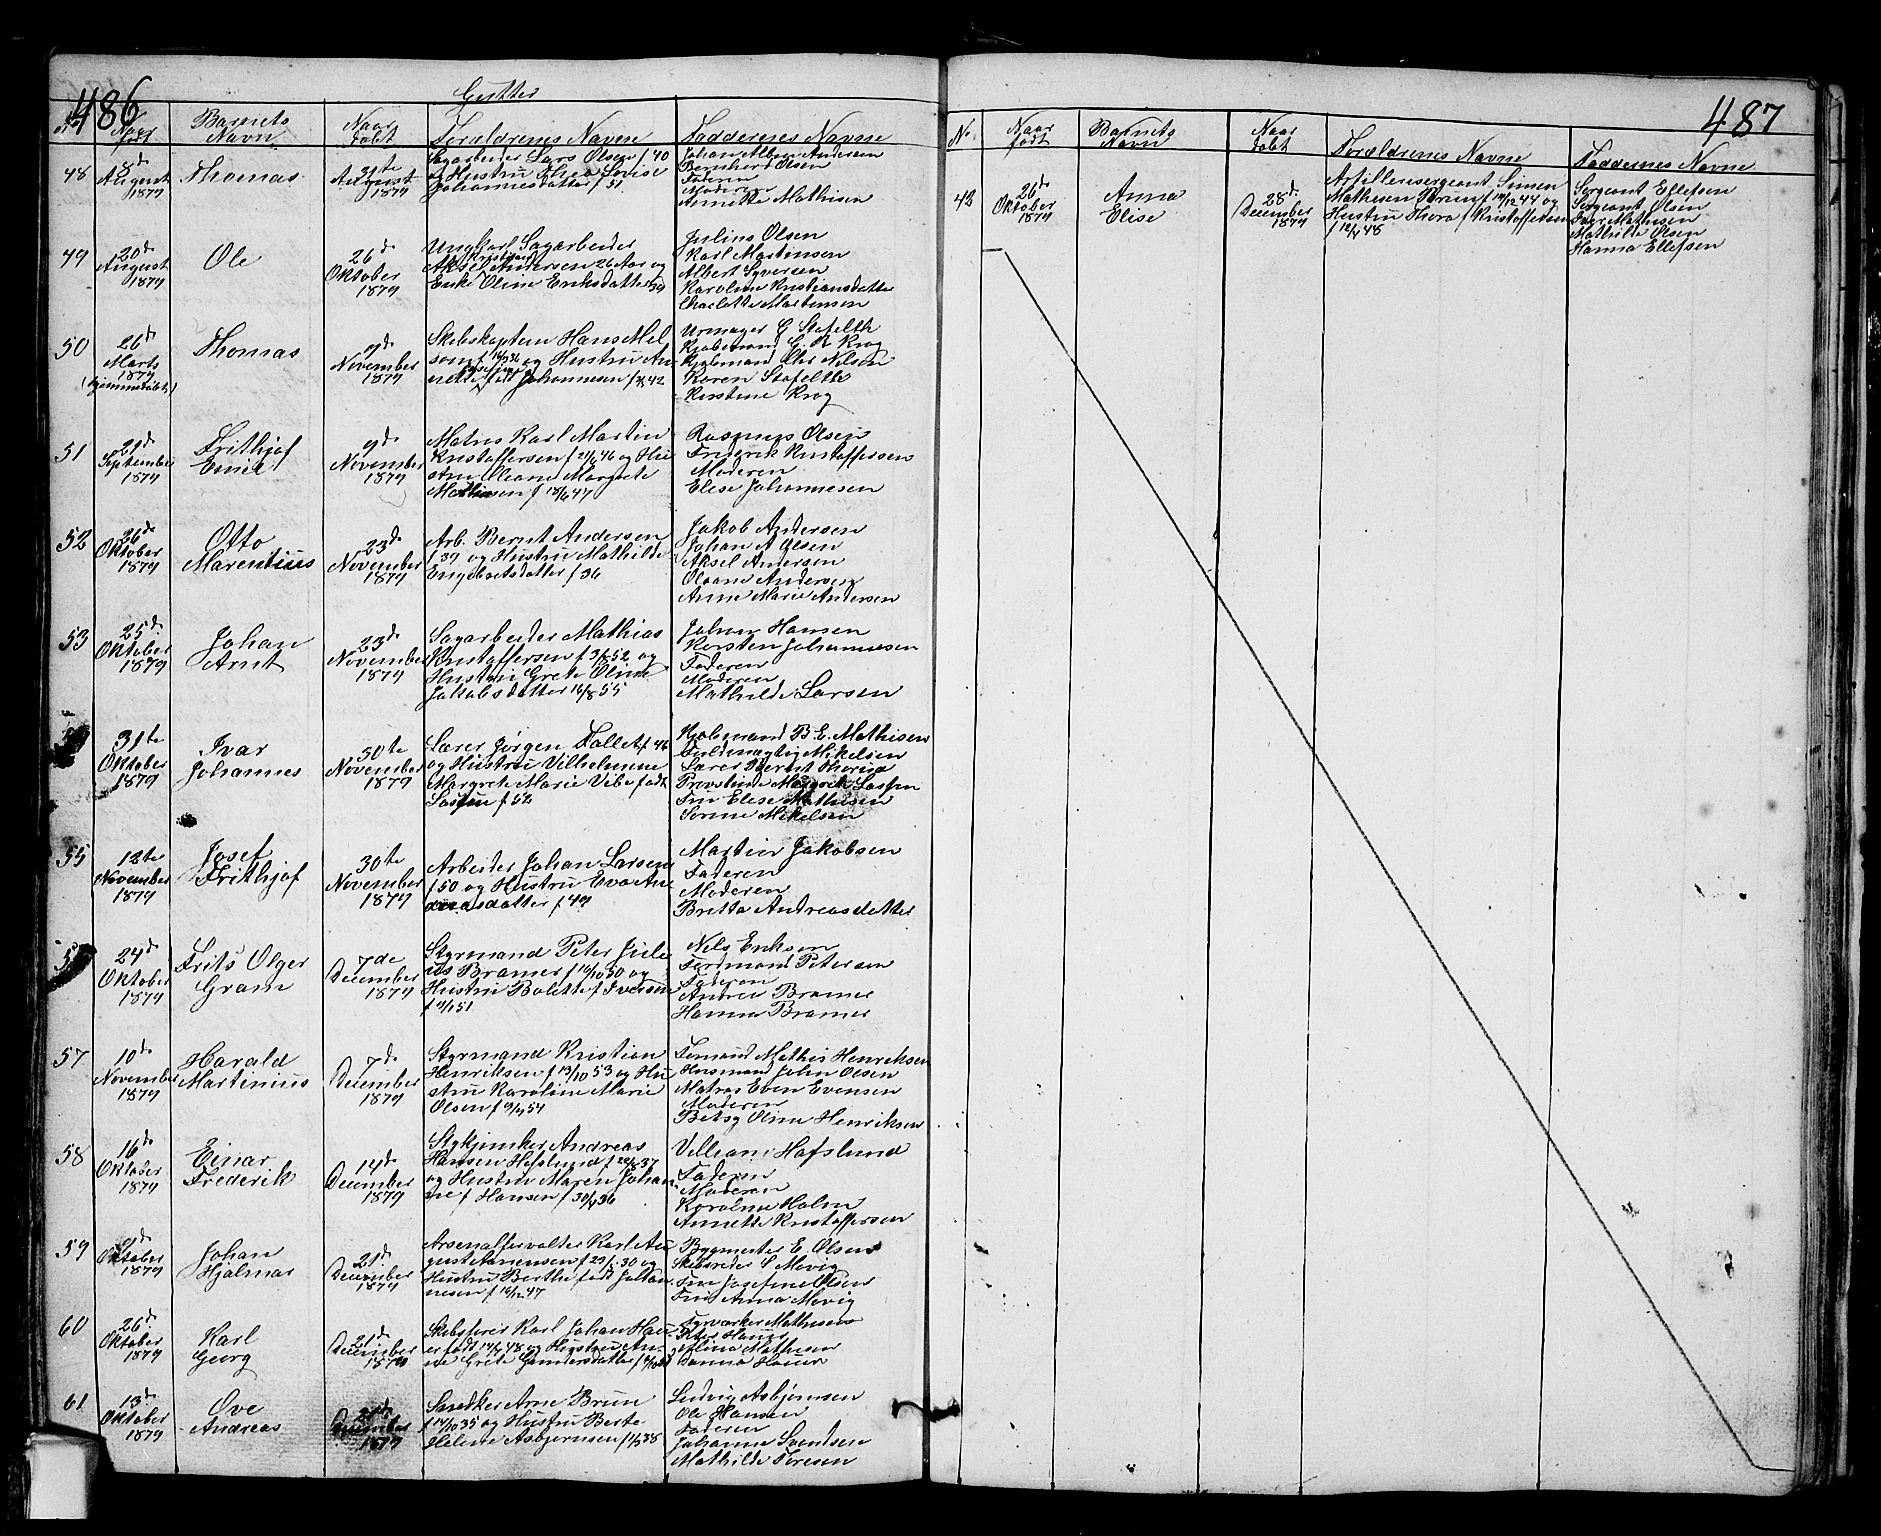 486
Gutter
No
Naar født
Barnets Navn
Naar Døbt
Forældrenes Navne
Faddernes Navne
48
8de August 1879
Thomas
31te August 1879
Sagarbeider Lars Olsen f 40
og Hustru Thea Lovise
Johannesdatter f 51
Johan Albin Andersen
Bernherd Olsen
Faderen
Moderen
Annette Mathisen
49
20de August 1879
Ole
26de Oktober 1879
Ungkarl Sagarbeider
Aksel Andersen 26 Aar og
Enke Oline Eriksdatter 39
Julius Olsen
Karl Martinsen
Albert Syversen
Karoline Kristiansdatter
Charlotte Martensen
50
26de Marts 1879
(hjemmedøbt)
Thomas
9de November 1879
Skibskaptein Hans Mel
som f 16/7 36 og Hustru An
nette Josefine født Johannesen f 42
Urmager G Stafeldt
Kjøbmand G. A Krog
Kjøbmand Elias Nilsen
Karen Stafeldt
Kirstine Krog
51
21de September 1879
Frithjof
Emil
9de November 1879
Matros Karl Martin
Kristoffersen f 21/6 46 og Hu
stru Oleane Margrete
Mathisen f 18/6 47
Rasmus Olsen
Frederik Kristoffersen
Moderen
Elise Johannesen
52
26de Oktober 1879
Otto
Marentius
23de November 1879
Arb. Bernt Andersen
f 39 og Hustru Mathilde
Engebretsdatter f 36
Jakob Andersen
Johan A Olsen
Aksel Andersen
Oleane Andersen
Anne Marie Andersen
53
25de Oktober 1879
Johan
Arnt
23de November 1879
Sagarbeider Mathias
Kristoffersen f 3/8 52 og
Hustru Grete Oline
Jakobsdatter 16/8 55
Johan Hansen
Karsten Johannesen
Faderen
Moderen
Mathilde Larsen
31te Oktober 1879
Ivar
Johannes
30te November 1879
Lærer Jørgen Tallet f 46
og Hustru Vilhelmine
Margrete Marie Vibe født
Lassen f 52
Kjøbmand B. E. Mathisen
Fuldmægtig Mikelsen
Lærer Bernt Thorsen
Provstinde Margrete Lassen
Fru Elise Mathisen
Sorine Mikelsen
55
12te November 1879
Josef
Frithjof
30te November 1879
Arbeider Johan Larsen
f 50 og Hustru Eva An
dreasdatter f 49
Martin Jakobsen
Faderen
Moderen
Britta Andreasdatter
5
24de Oktober 1879
Frits Olger
Gram
7de December 1879
Styrmand Peter Juli
us Bramer f 10/10 50 og
Hustru Bolette f Iversen
f 9/1 51
Nils Eriksen
Ferdinand Petersen
Faderen
Andrea Bramer
Hanna Bramer
57
10de November 1879
Harald
Martinius
7de December 1879
Styrmand Kristian
Henriksen f 13/10 53 og Hu
stru Karoline Marie
Olsen f 9/7 54
Tømmand Mathis Henriksen
Husmand John Olsen
Matros Even Evensen
Moderen
Betsy Oline Henriksen
58
16de Oktober 1879
Einar
Frederik
14de December 1879
Stykjunker Andreas
Hansen Hafslund f 22/8 37
og Hustru Maren Johan
ne f Hansen f 30/4 36
Villiam Hafslund
Faderen
Moderen
Karoline Holm
Annette Kristoffersen
59
9de Oktober 1879
Johan
Hjalmar
21de December 1879
Arsenalforvalter Karl Au
gust Arnensen f 29/1 30 og
Hustru Berthe født Johan
nesen f 16/12 47
Bygmester E. Olsen
Skibsreder C Movig
Fru Josefine Olsen
Fru Anna Movig
60
26de Oktober 1879
Karl
Georg
21de December 1879
Skibsfører Karl Johan Hau
er født 14/1 48 og Hustru An
ne Grete Gundersdatter
Fyrværker Mathisen
Peter Hauer
Elina Mathisen
Danna Hauer
61
13de Oktober 1879
Ove
Andreas
21de December 1879
Snedker Arne Brun
f 14/10 35 og Hustru Berte
Helene Asbjørnsen f 1/3 38
Ludvig Asbjørnsen
Ole Hansen
Faderen
Johanne Svendsen
Mathilde Toresen
487
No.
Naar født
Barnets Navn
Naar Døbt
Forældrenes Navne
Faddernes Navne
42
26de Oktober 1879
Anna
Elise
28de December 1879
Artillerisergeant Simen
Mathisen Brun f 14/12 44 og
Hustru Thora f Kristoffersen
f 12/4 48
Sergeant Ellefsen
Sergeant Olsen
Iver Mathisen
Mathilde Olsen
Hanna Ellefsen